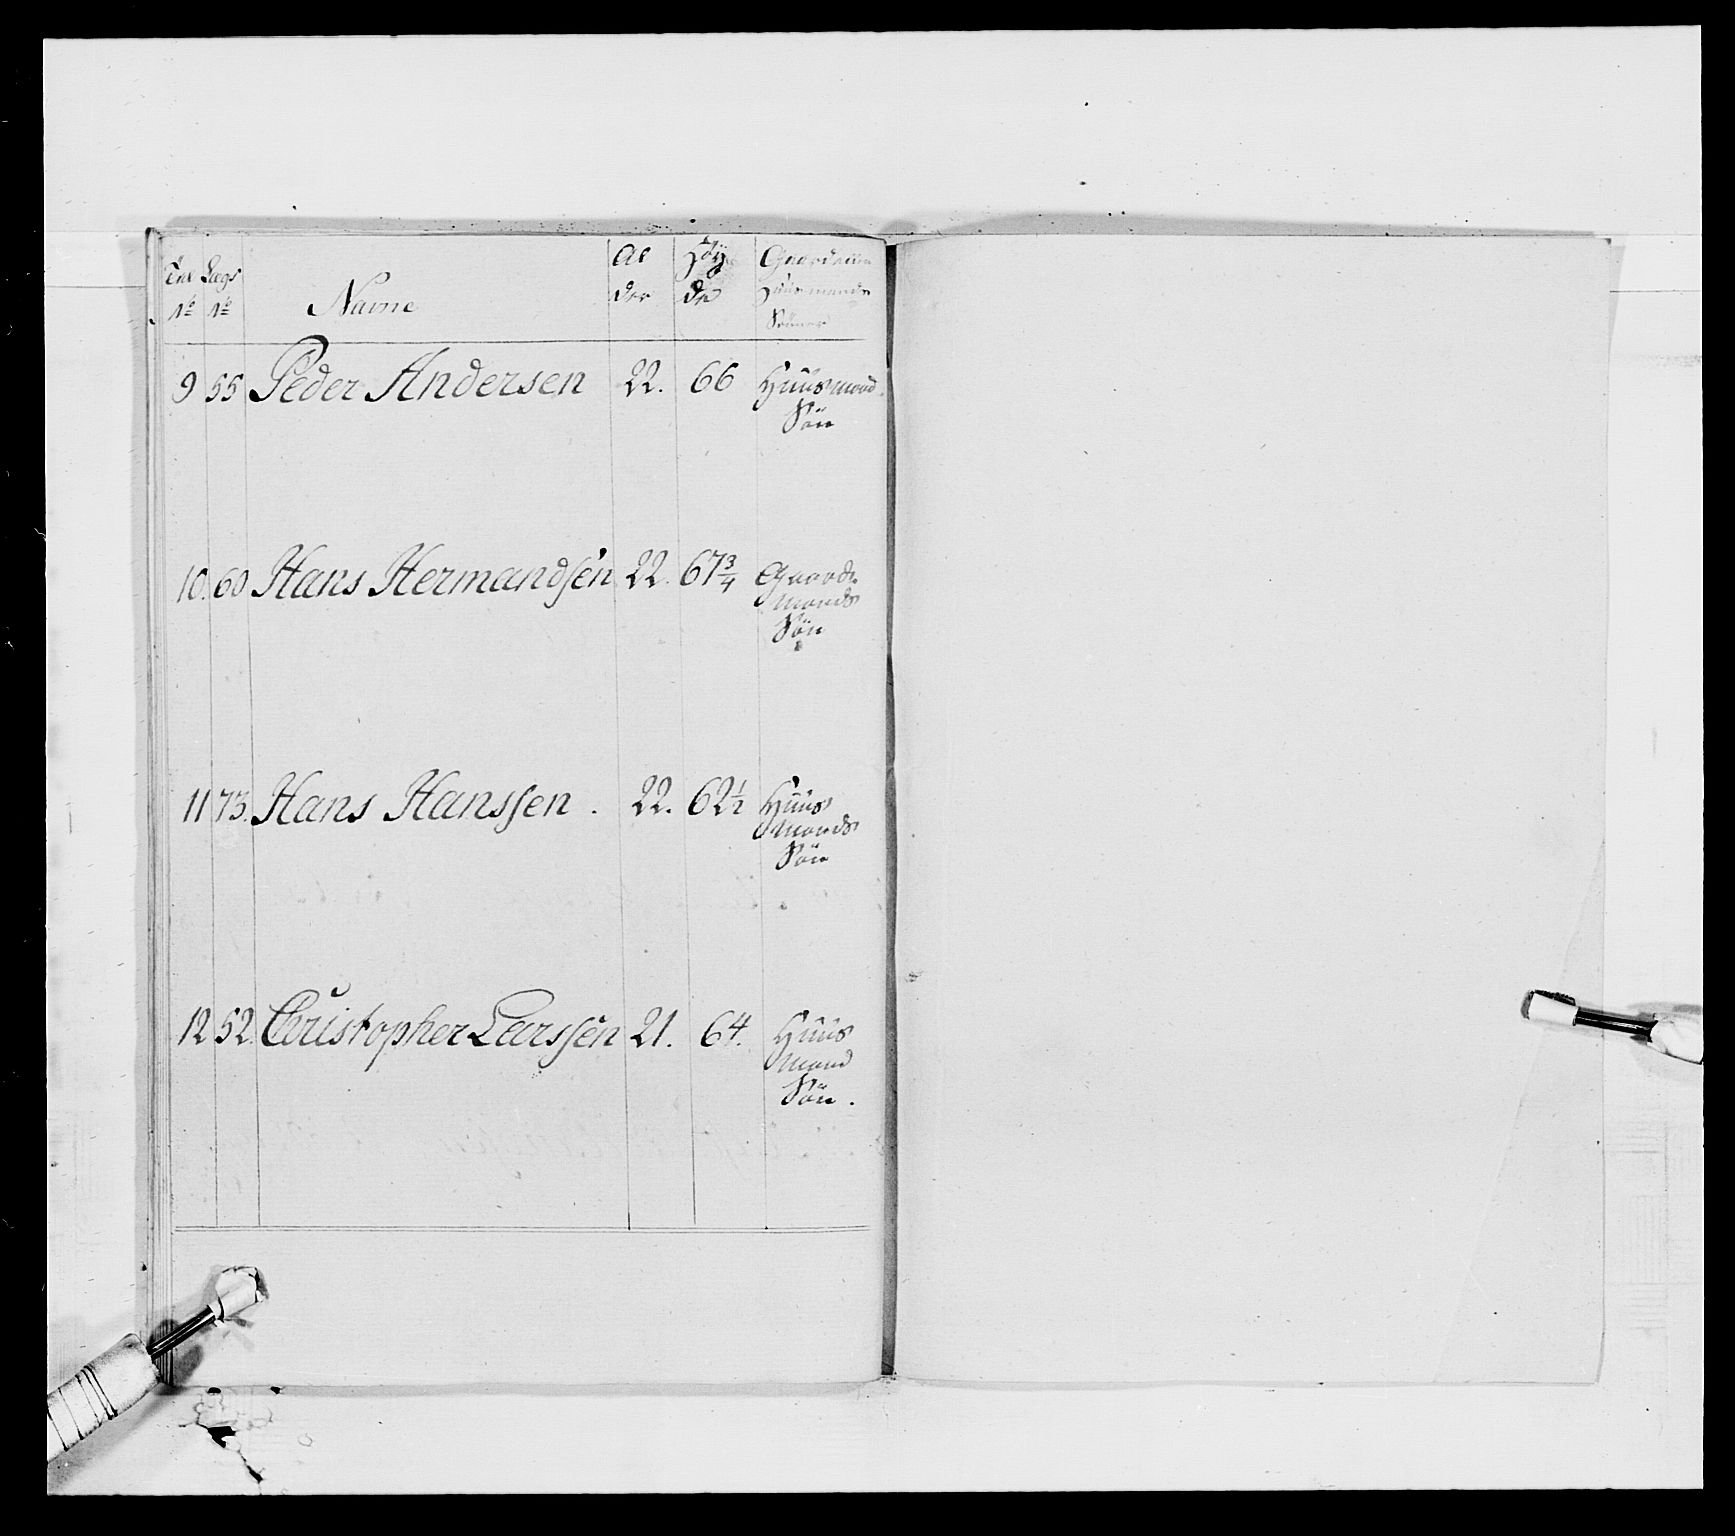 Tal Lægs Al Høy Gaard eller
No No Navne der de Huusmands
Sønner
9 55 Peder Andersen 22. 66 Huusmand
Sön
10. 60 Hans Hermandsen 22. 67 3/4 Gaard
mands
Sön
11 73. Hans Hanssen . 22. 62 1/2 Huus
mands
Sön
12 52. Christopher Larssen 21. 64. Huus
mand
Sön .